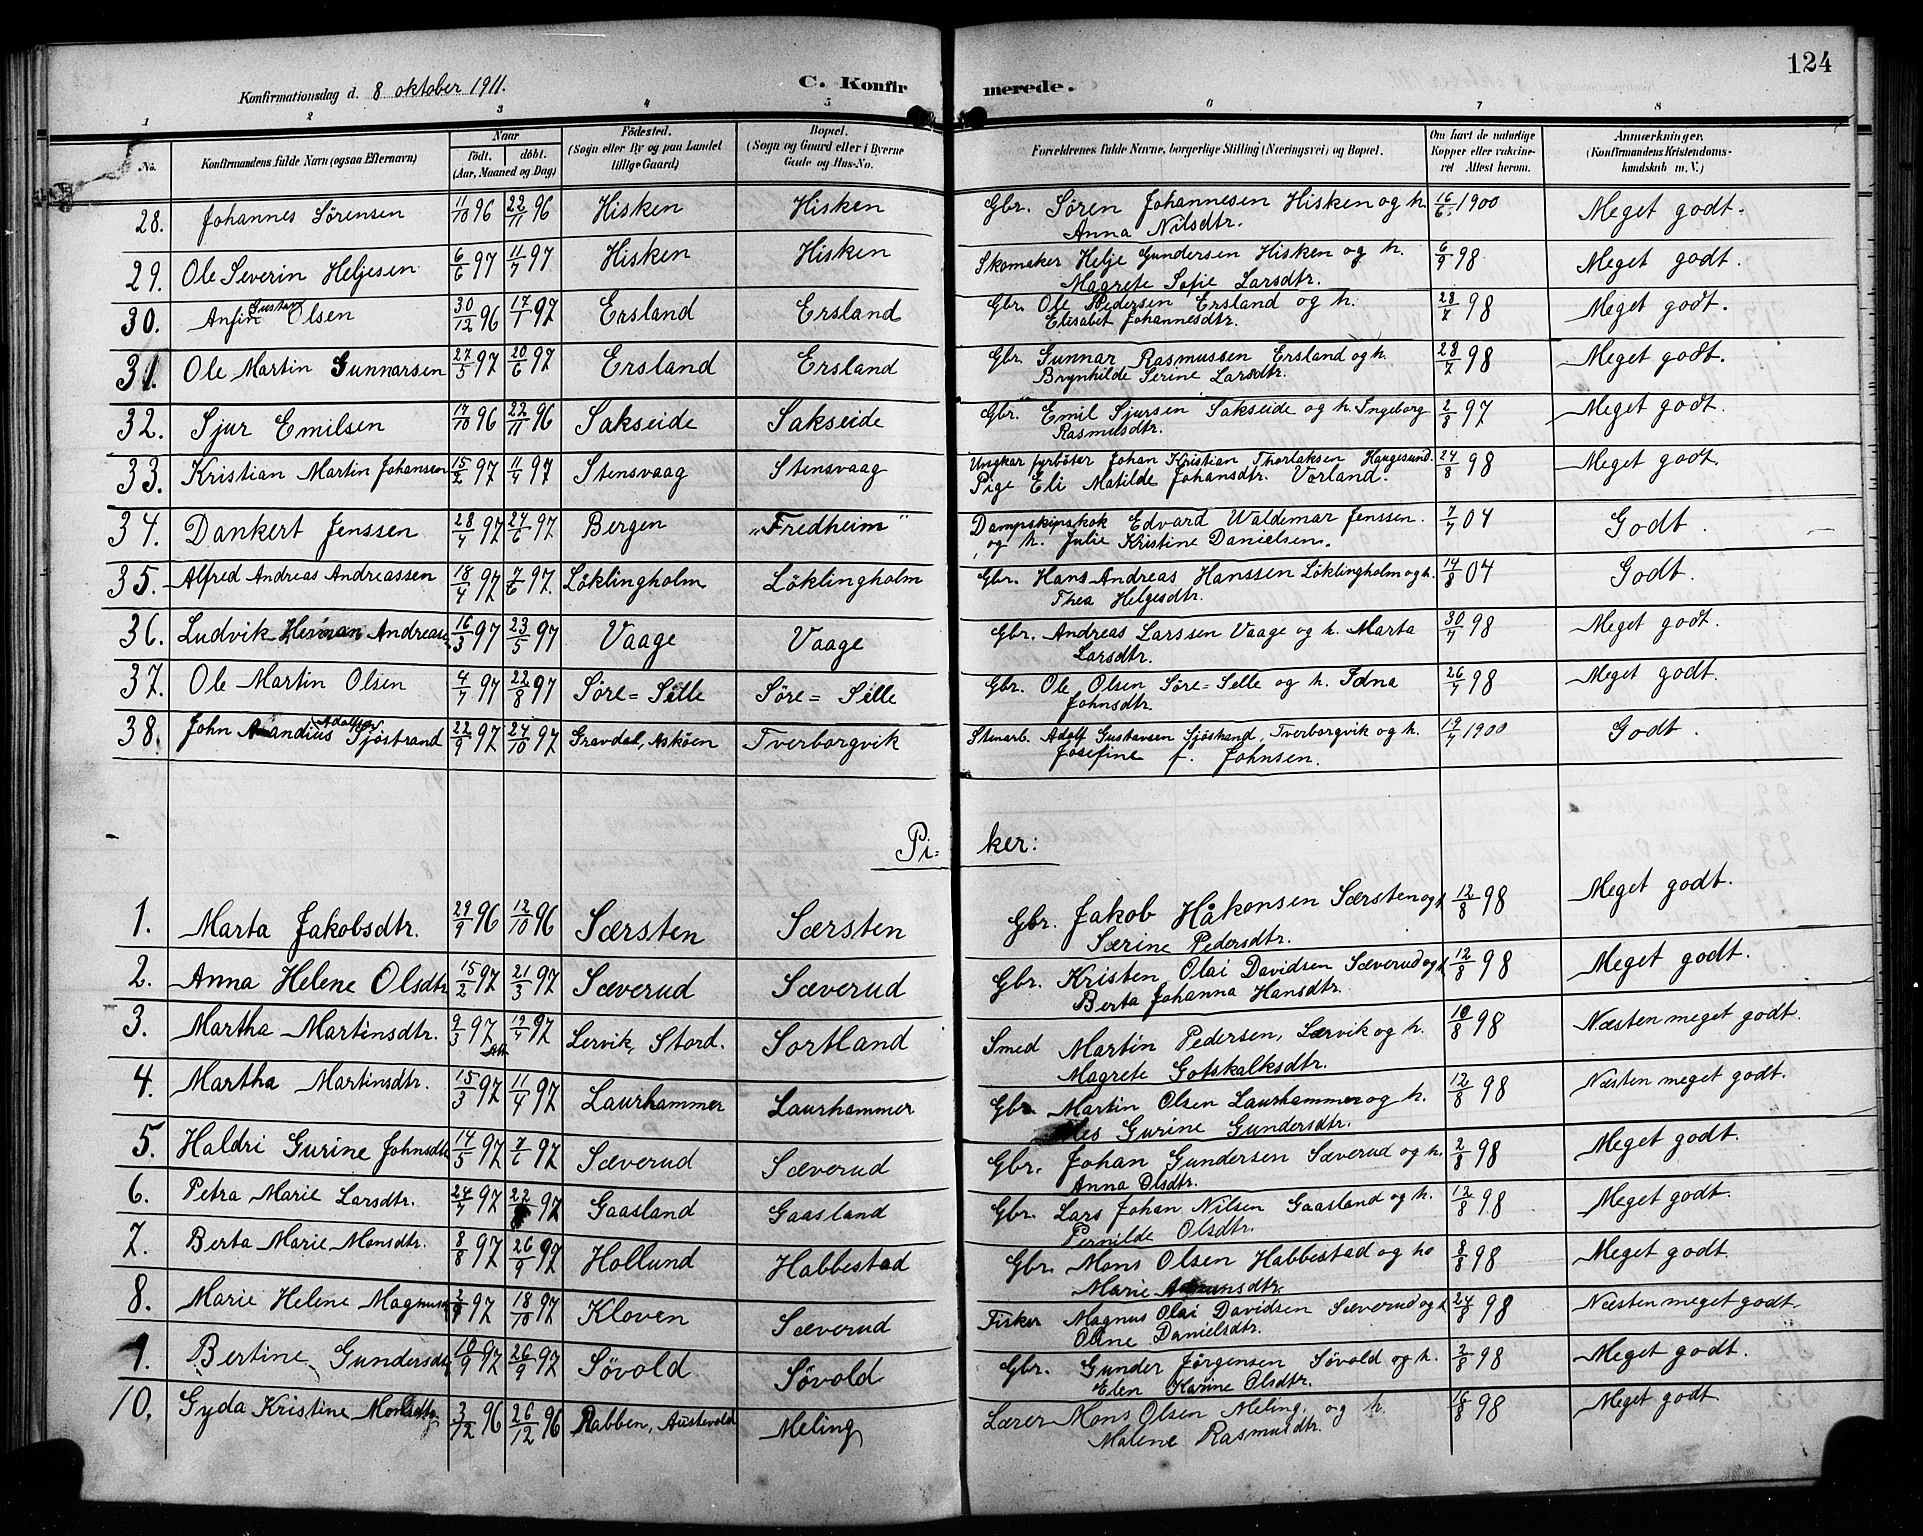 124
Konfirmationsdag d. 8 oktober 1911.
C. Konfir merede.
1 2 3 4 5 6 7 8
No. Konfirmandens fulde Navn (ogsaa Efternavn) Naar født. døbt. (Aar, Maaned og Dag) Födested. (Sogn eller By og paa Landet tillige Gaard) Bopæl. (Sogn og Gaard eller i Byerne Gade og Hus-No. Forældrenes fulde Navne, borgerlige Stilling (Næringsvei) og Bopæl. Om havt de naturlige Kopper eller vakcineret Attest herom. Anmærkninger. (Konfirmandens Kristendomskundskab m. V.)
28. Johannes Sörensen 11/10 96 22/11 96 Hisken Hisken Gbr. Sören Johannesen Hisken og h. Anna Nilsdtr. 16/6 1900 Meget godt.
29. Ole Severin Heljesen 6/6 97 11/7 97 Hisken Hisken Skomaker Helje Gundersen Hisken og h. Magrete Sofie Larsdtr. 6/9 98 Meget godt.
30. Anfin Gustav Olsen 30/12 96 17/1 97 Ersland Ersland Gbr. Ole Pedersen Ersland og h. Elisabet Johannesdtr. 28/7 98 Meget godt.
31. Ole Martin Gunnarsen 27/5 97 20/6 97 Ersland Ersland Gbr. Gunnar Rasmussen Ersland og h. Brynhilde Serine Larsdtr. 28/7 98 Meget godt.
32. Sjur Emilsen 17/10 96 22/11 96 Sakseide Sakseide Gbr. Emil Sjursen Sakseide og h. Ingeborg Rasmusdtr. 2/8 97 Meget godt.
33. Kristian Martin Johansen 15/2 97 11/4 97 Stensvaag Stensvaag Ungkar fyrböter Johan Kristian Thorlaksen Haugesund. Pige Eli Matilde Johansdtr. Vorland. 24/8 98 Meget godt.
34. Dankert Jenssen 28/4 97 24/6 97 Bergen "Fredheim" Dampskipskok Edvard Waldemar Jenssen. og h. Julie Kristine Danielsen. 7/7 04 Godt.
35. Alfred Andreas Andreassen 18/4 97 7/6 97. Löklingholm Löklingholm Gbr. Hans Andreas Hanssen Löklingholm og h. Thea Helgesdtr. 14/8 04 Godt.
36. Ludvik Herman Andreas 16/3 97 23/5 97 Vaage Vaage Gbr. Andreas Larssen Vaage og h. Marta Larsdtr. 30/7 98 Meget godt.
37. Ole Martin Olsen 4/7 97 22/8 97 Söre=Sille Söre=Sille Gbr. Ole Olsen Söre=Selle og h. Idna Johnsdtr. 26/7 98 Meget godt.
38. John Adolfsen Sjöstrand 22/9 97 24/10 97 Gravdal, Asköen Tverborgvik Stenarb. Adolf Gustavsen Sjöstrand, Tverborgvik og h. Josefine f. Johnsen. 19/7 1900 Godt.
Pi=ker:
1. Marta Jakobsdtr. 29/9 96 12/10 96 Særsten Særsten Gbr. Jakob Håkonsen Særsten og h Særine Pedersdtr. 12/8 98 Meget godt.
2. Anna Helene Olsdtr 15/2 97 21/3 97 Sæverud Sæverud Gbr. Kristen Olai Davidsen Sæverud og h Berta Johanna Hansdtr. 12/8 98 Meget godt.
3. Martha Martinsdtr. 9/3 97 19/4 97 Lervik, Stord. Sortland Smed Martin Pedersen, Lærvik og h. Magrete Gotskalksdtr. 10/8 98 Næsten meget godt.
4. Martha Martinsdtr. 15/3 97 11/4 97 Laurhammer Laurhammer Gbr. Martin Olsen Laurhammer og h. Gurine Gundersdtr. 12/8 98 Næsten meget godt.
5. Haldri Gurine Johnsdtr 14/5 97 7/6 97 Sæverud Sæverud Gbr. Johan Gundersen Sæverud og h. Anna Olsdtr. 2/8 98 Meget godt.
6. Petra Marie Larsdtr. 24/7 97 22 97 Gaasland Gaasland Gbr. Lars Johan Nilsen Gaasland og h. Pernilde Olsdtr. 12/8 98 Meget godt.
7. Berta Marie Monsdtr. 8/8 97 26/9 97 Hollund Habbestad Gbr. Mons Olsen Habbestad og h. Marie 8/8 98 Meget godt.
8. Marie Helene Magnus 2/9 97 18/10 97 Kloven Sæverud Fisker Magnus Olai Davidsen Sæverud og h Oline Danielsdtr. 24/8 98 Næsten meget godt.
9. Bertine Gundersdtr 10/9 97 26/9 97 Sövold Sövold Gbr. Gunder Jörgensen Sövold og h. Elen Karine Olsdtr. 2/8 98 Meget godt.
10. Gyda Kristine Monsdtr 3/12 96 26/12 96 Rabben, Austevold Meling Lærer Mons Olsen Meling, og h. Malene Rasmusdtr. 16/8 98 Meget godt.